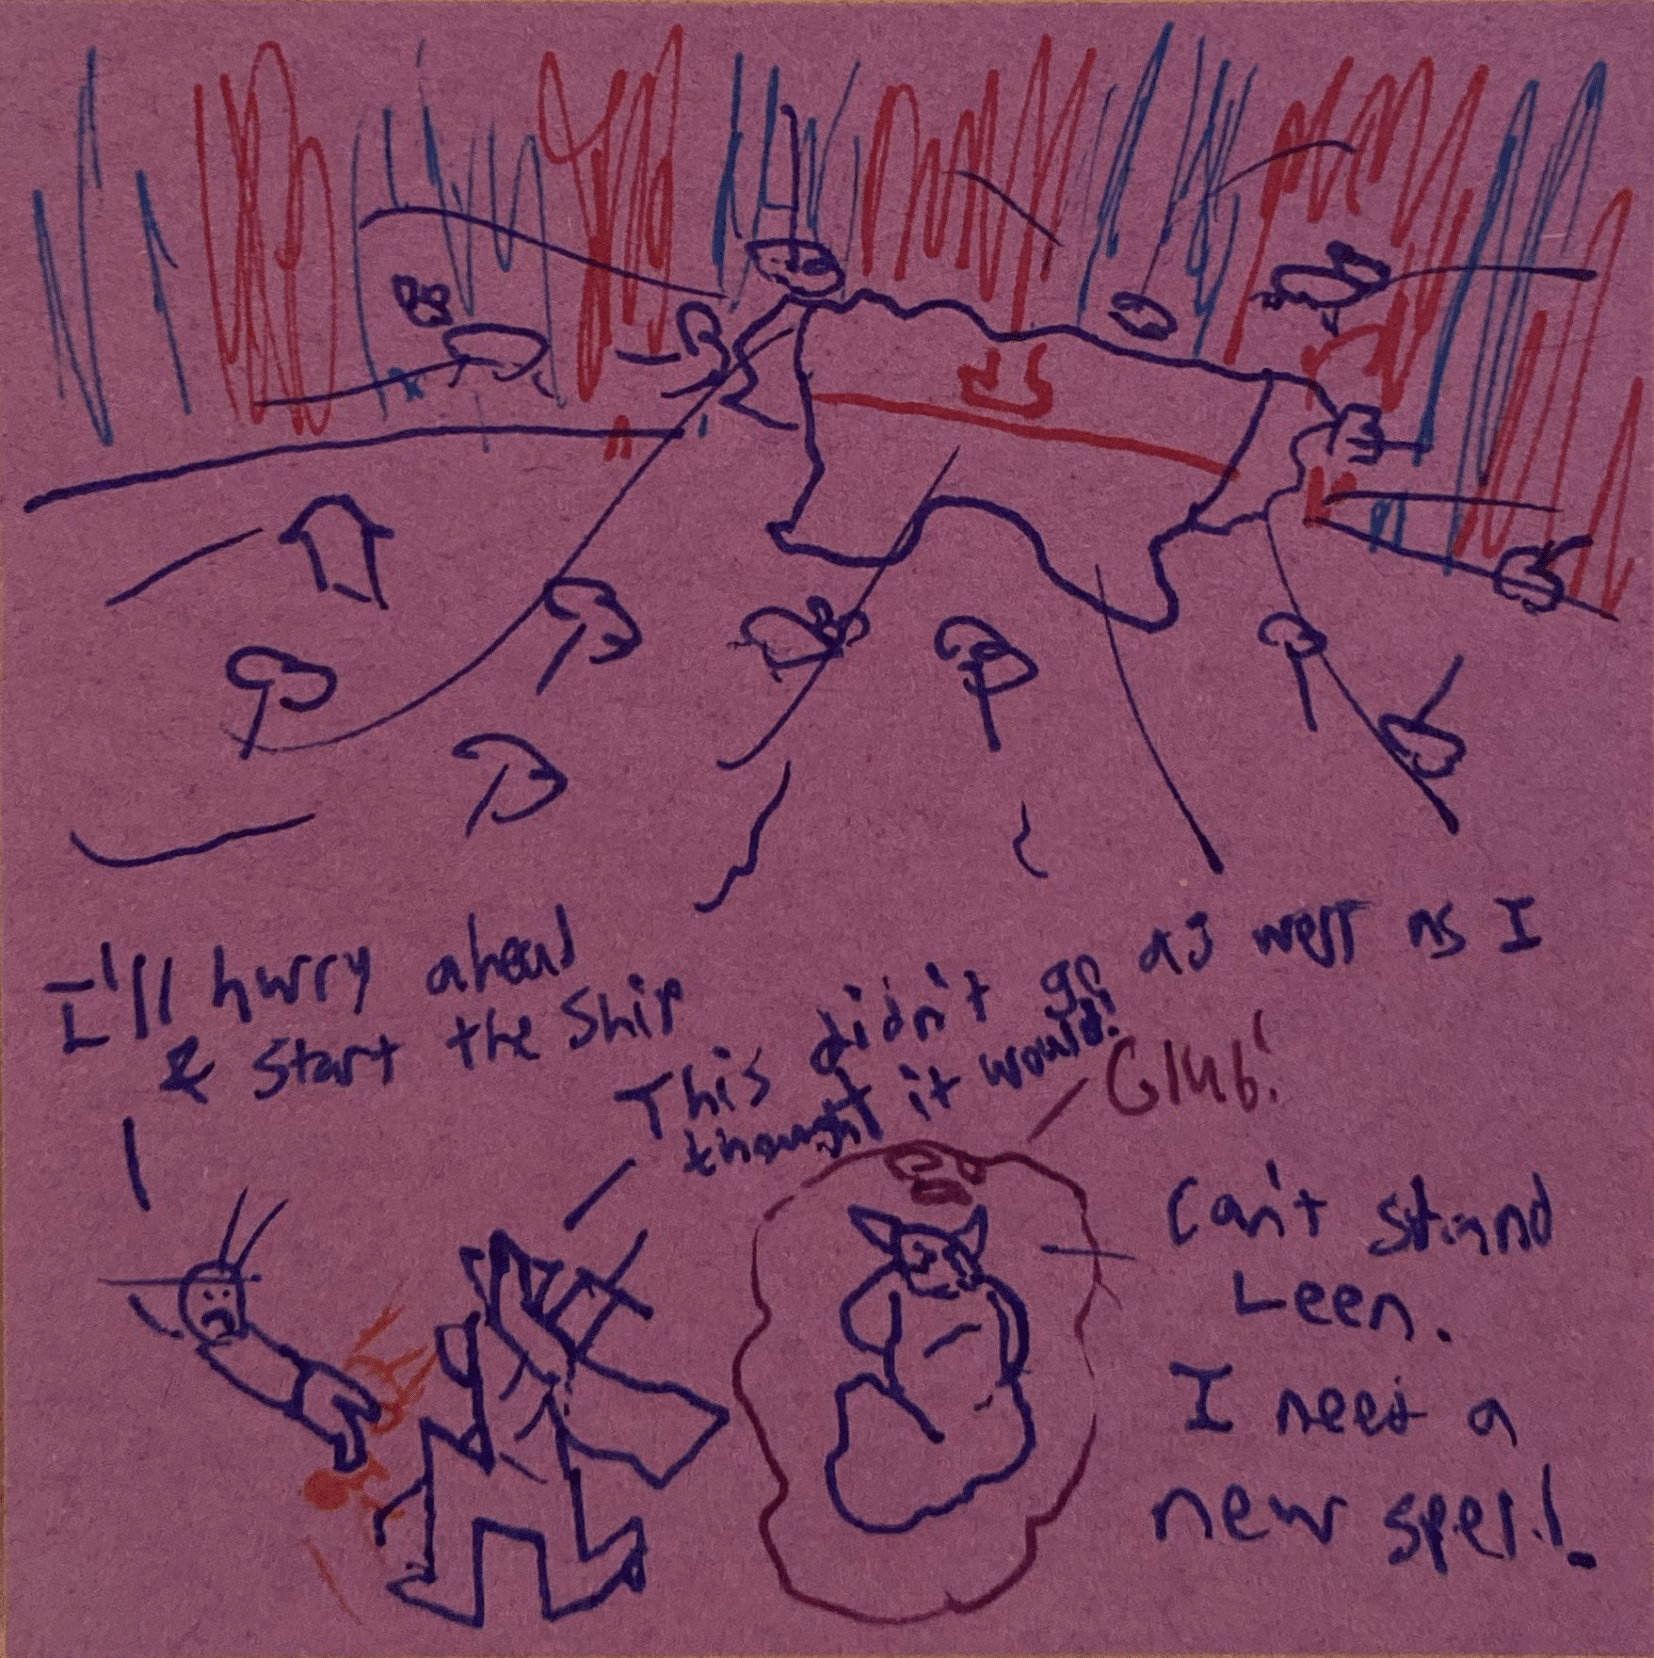 I'll hurry ahead
& start the ship
This didn't go as well as I
thought it would!
Glub!
Can't stand
Leen.
I need a
new spell.